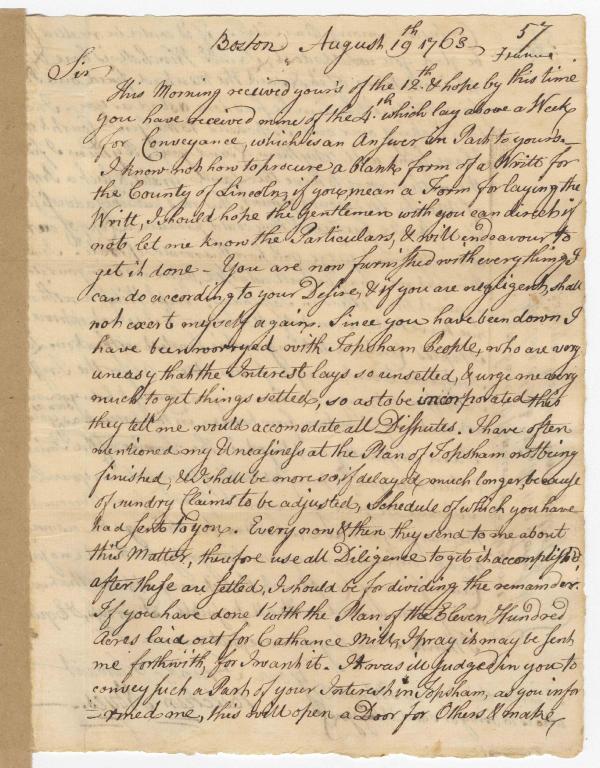 57
Boston August 19th 1763
Sir
This Morning received your's of the 12th & hope by this time
you have received mine of the 4th which lay above a Week
for Conveyance, which is an Answer in Part to your's—
I know not how to procure a blank form of a Writt for
the County of Lincoln, if you mean a Form for laying the
Writt, I should hope the Gentlemen with you can direct if
not let me know the Particulars, & will endeavour to
get it done — You are now furnished with every thing I
can do according to your Desire, & if you are negligent, shall
not exert myself again. Since you have been down I
have been worryed with Topsham People, who are very
uneasy that the Interest lays so unsetled, & urge me very
much to get things setled, so as to be incorporated this
they tell me would accomodate all Disputes. I have often
mentioned my Uneasiness at the Plan of Topsham not being
finished, & I shall be more so, if delayed much longer, because
of sundry Claims to be adjusted, Schedule of which you have
had sent to you. Every now & then they send to me about
this Matter, therefore use all Diligence to get it accomplish'd
after these are setled, I should be for dividing the remainder.
If you have done with the Plan of the Eleven Hundred
Acres laid out for Cathance Mill, I pray it may be sent
me forthwith, for I want it. It was ill judged in you to
convey such a Part of your Interest in Topsham, as you infor
=rmed me, this will open a Door for Others & make